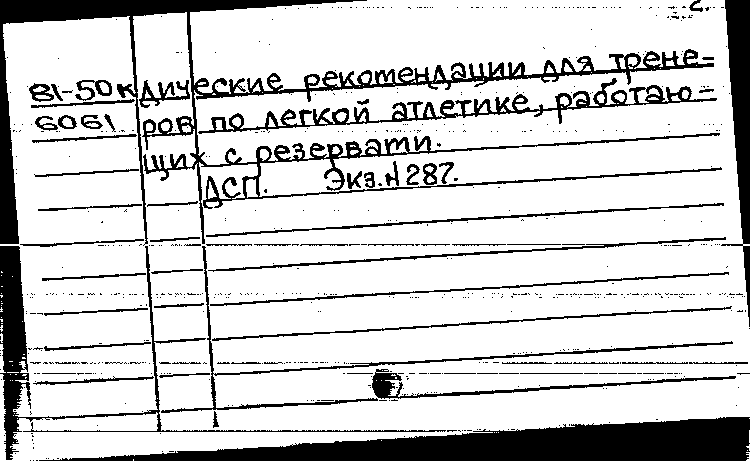 2.
81-50к дические рекомендации для трене-
6061 ров по легкой атлетике, работаю-
щих с резервами.
ДСП. Экз.N287.